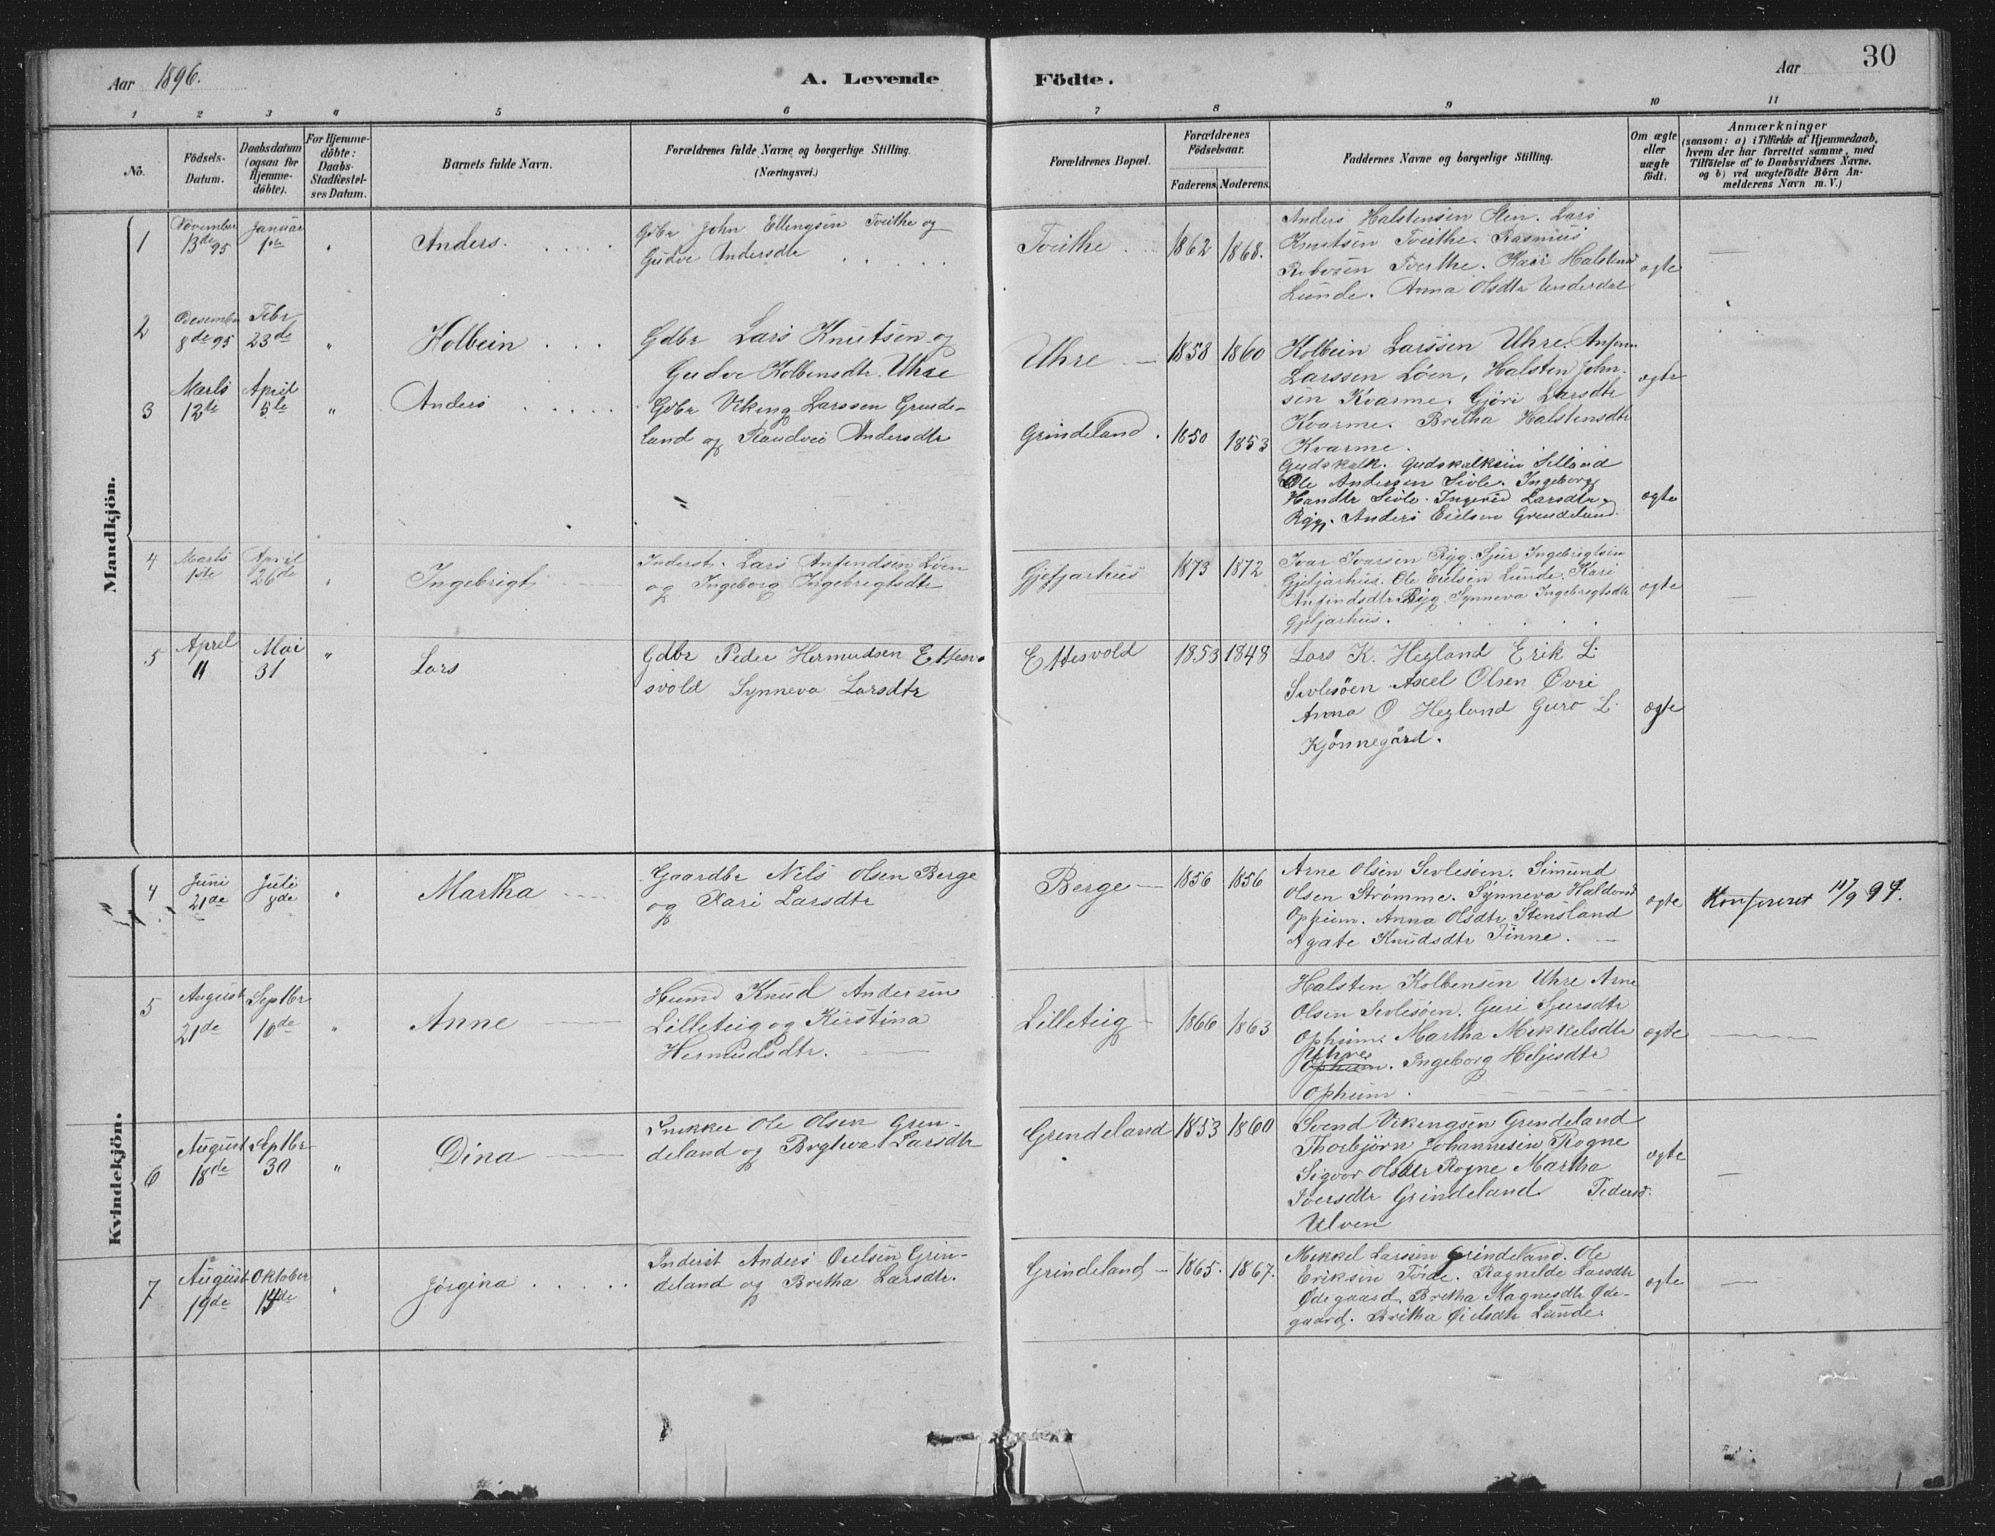 Aar 1896.
A. Levende
Födte.
Aar
30
1 2 3 4 5 6 7 8 9 10 11
No.
Födsels-
Datum.
Daabsdatum
(ogsaa for
Hjemme-
döbte).
For Hjemme-
döbte:
Daabs
Stadfæstel-
ses Datum.
Barnets fulde Navn.
Forældrenes fulde Navne og borgerlige Stilling.
(Næringsvei.)
Forældrenes Bopæl.
Forældrenes
Födselsaar.
Faderens. Moderens.
Faddernes Navne og borgerlige Stilling.
Om ægte
eller
uægte
födt.
Anmærkninger
(saasom: a) i Tilfælde af Hjemmedaab,
hvem der har forrettet samme, med
Tilföielse af to Daabsvidners Navne.
og b) ved uægtefödte Börn An-
melderens Navn m. V.)
Mandkjön.
1
November
13de 95
Januar
1ste
"
Anders.
Gdbr John Ellingsen Tveithe og
Gudve Andersdtr
Tveithe
1862
1868.
Anders Halstensen Sten. Lars
Knutsen Tveithe. Rasmus
Tveithe. Kari Halstensd
Lunde. Anna Olsdtr Underdal
ægte
2
Desember
8de 95
Febr
23de
"
Kolbein
Gdbr Lars Knutsen og
Gudve Kolbensdtr Uhre
Uhre
1858
1860
Kolbein Larssen Uhre. Anfin
Larssen Löen, Halsten John-
sen Kvarme. Gjöri Larsdtr
Kvarme. Bretha Halstensdtr
Kvarme.
ægte
3
Marts
12te
April
5te
"
Anders
Gdbr Viking Larssen Grinde-
land og Randvei Andersdtr
Grindeland.
1850
1853
Gudskalk Gudskalksen Selland
Ole Andersen Sivle. Ingeborg
Sivle. Ingerid Larsdtr
Ryg. Anders Eielsen Grendeland.
ægte
4
Marts
1ste
April
26de
"
Ingebrigt
Inderst. Lars Anfindsen Löen
og Ingeborg Ingebrigtsdtr
Gjefjarhus
1873
1872
Ivar Ivarsen Ryg. Sjur Ingebrigtsen
Gjefjarhus. Ole Eielsen Lunde. Kari
Anfindsdtr Ryg. Synneva Ingebrigtsdtr
Gjefjarhus.
ægte
5
April
11
Mai
31
"
Lars
Gdbr Peder Hermudsen Ettes-
svold Synneva Larsdtr
Ettesvold
1853
1848
Lars K. Hegland Erik L.
Sivlesöen Axel Olsen Övre
Anna O Hegland Guro L.
Kjönnegård.
ægte
Kvindekjön.
4
Juni
21de
Juli
"
Martha
Gaardbr Nils Olsen Berge
og Kari Larsdtr
Berge
1856
1856
Arne Olsen Sivlesöen. Simund
Olsen Strömme. Synneva Haldorsd
Opheim. Anna Olsdtr Stensland
Agate Knudsdtr Finne.
ægte
9 97.
5
August
21de
Septbr
10de
"
Anne
Husmd Knud Andersen
Lilleteig og Kirstina
Hermudsdtr.
Lilleteig
1866
1863
Halsten Kolbensen Uhre Arne
Olsen Sivlesöen. Guri Sjursdtr
Opheim. Martha Mikkelsdtr
Opheim. Ingeborg Heljesdtr
Opheim.
ægte
6
August
18de
Septbr
30
"
Dina
Snekker Ole Olsen Grin-
deland og Larsdtr
Grendeland
1853
1860
Svend Vikengsen Grendeland
Thorbjörn Johannesen Rogne
Sigvor Olsdtr Rogne Martha
Iversdtr Grindeland Pedersd.
Ulven
ægte
7
August
19de
Oktober
"
Jörgina
Inderst Anders Öielsen Grin-
deland og Bretha Larsdtr.
Grindeland
1865.
1867.
Mikkel Larsen Grindeland. Ole
Eriksen Törde. Ragnilde Larsdtr
Ödegaard. Bretha Magnesdtr Öde-
gaard. Bretha Öielsdtr Lunde.
ægte